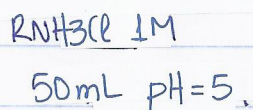 RNH3Cl 1M
50mL pH=5.